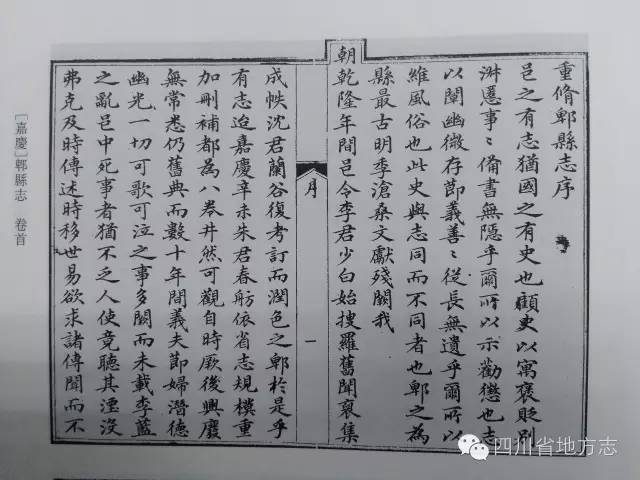 重脩郫縣志序
邑之有志猶國之有史也顧史以寓褒貶別
淑慝事〻備書無隱乎爾所以示勸懲也志
以闡幽微存節義善〻從長無遺乎爾所以
維風俗也此史與志同而不同者也郫之為
縣最古明季滄桑文獻殘闕我
朝乾隆年間邑令李君少白始搜羅舊聞裒集
月 一
成帙沈君蘭谷復考訂而潤色之郫於是乎
有志迨嘉慶辛未朱君春舫依省志規模重
加刪補都為八卷井然可觀自時厥後興廢
無常悉仍舊典而數十年間義夫節婦潛德
幽光一切可歌可泣之事多闕而未載李藍
之亂邑中死事者猶不乏人使竟聽其湮沒
弗克及時傳述時移世易欲求諸傳聞而不
[嘉慶]郫縣志 卷首
四川省地方志